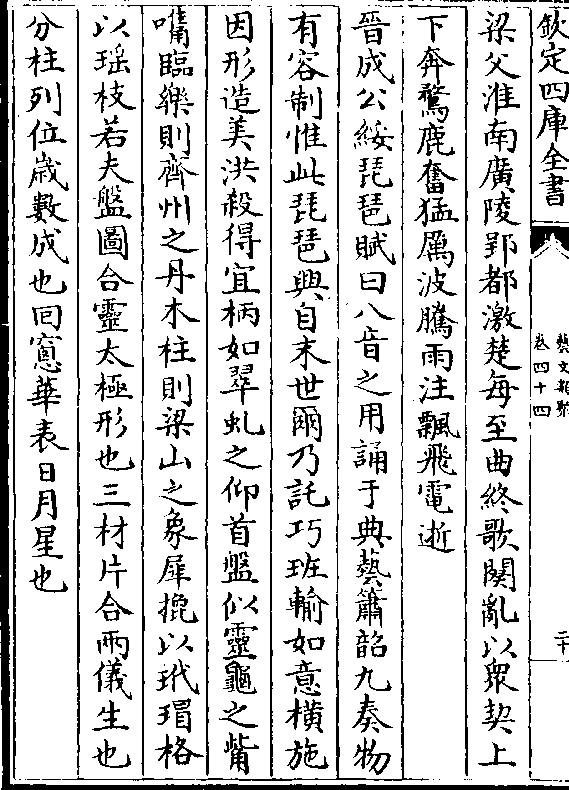 欽定四庫全書
藝文類聚
卷四十四
二十
梁父淮南廣陵郢都激楚每至曲終歌闋亂以衆契上
下奔騖鹿奮猛厲波騰雨注飄飛電逝
晉成公綏琵琶賦曰八音之用誦于典藝簫韶九奏物
有容制惟此琵琶興自末世爾乃託巧班輸如意橫施
因形造美洪殺得宜柄如翠虬之仰首盤似靈龜之觜
嶲臨樂則齊州之丹木柱則梁山之象犀㨫以玳瑁格
以瑶枝若夫盤圖合靈太極形也三材片合兩儀生也
分柱列位歲數成也囘窻華表日月星也